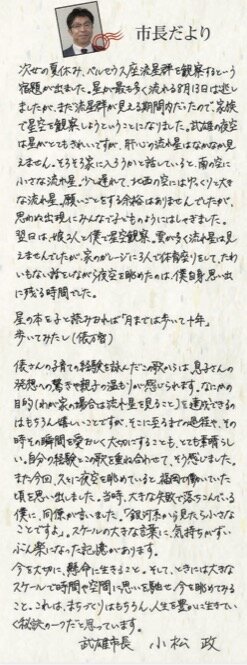 市長だより
次女の夏休み、ペルセウス座流星群を観察するという
宿題が出ました。星が最も多く流れる8月13日は逃し
ましたが、まだ流星群が見える期間内だったので、家族
で星空を観察しようということになりました。武雄の夜空
は星がとてもきれいですが、肝心の流れ星はなかなか見
えません。そろそろ家に入ろうかと話していると、南の空に
小さな流れ星。少し遅れて、北西の空にはゆっくりと大き
な流れ星。願いごとをする余裕はありませんでしたが、
思わぬ出現にみんなで子どものようにはしゃぎました。
翌日は、娘2人と僕で星空観察。雲が多く流れ星は見
えませんでしたが、家のガレージに3人で体育座りをして、たわ
いもない話をしながら夜空を眺めたのは、僕自身、思い出
に残る時間でした。
星の本を子と読みおれば「月までは歩いて十年」
歩いてみたし（俵万智）
俵さんの子育ての経験を詠んだこの歌からは、息子さんの
発想への驚きや親子の温もりが感じられます。なにかの
目的（わが家の場合は流れ星を見ること）を達成できるの
はもちろん嬉しいことですが、そこに至るまでの過程や、その
時その瞬間を愛おしく大切にすることも、とても素晴らし
い。自分の経験とこの歌を重ね合わせて、そう感じました。
また今回、久々に夜空を眺めていると、福岡で働いていた
頃を思い出しました。当時、大きな失敗で落ちこんでいる
僕に、同僚が言いました。「銀河系から見たら小さな
ことですよ」。スケールの大きな言葉に、気持ちがずい
ぶん楽になった記憶があります。
今を大切に、懸命に生きること。そして、ときには大きな
スケールで時間や空間に思いを馳せ、今を眺めてみる
こと。これは、まちづくりはもちろん、人生を豊かに生きてい
く秘訣の一つだと思っています。
武雄市長 小松 政